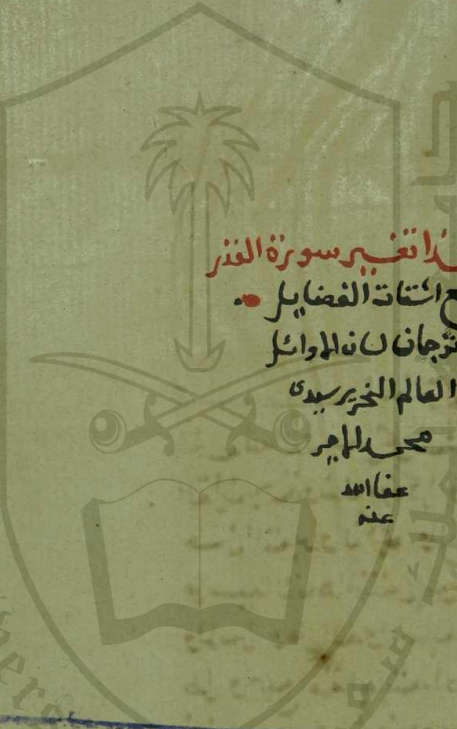 هذا تفسير سورة القدر
اشتات الفضايل
ترجمان لسان الاوائل
العالم النحرير سيدى
محمد الامير
عفا الله
عنه